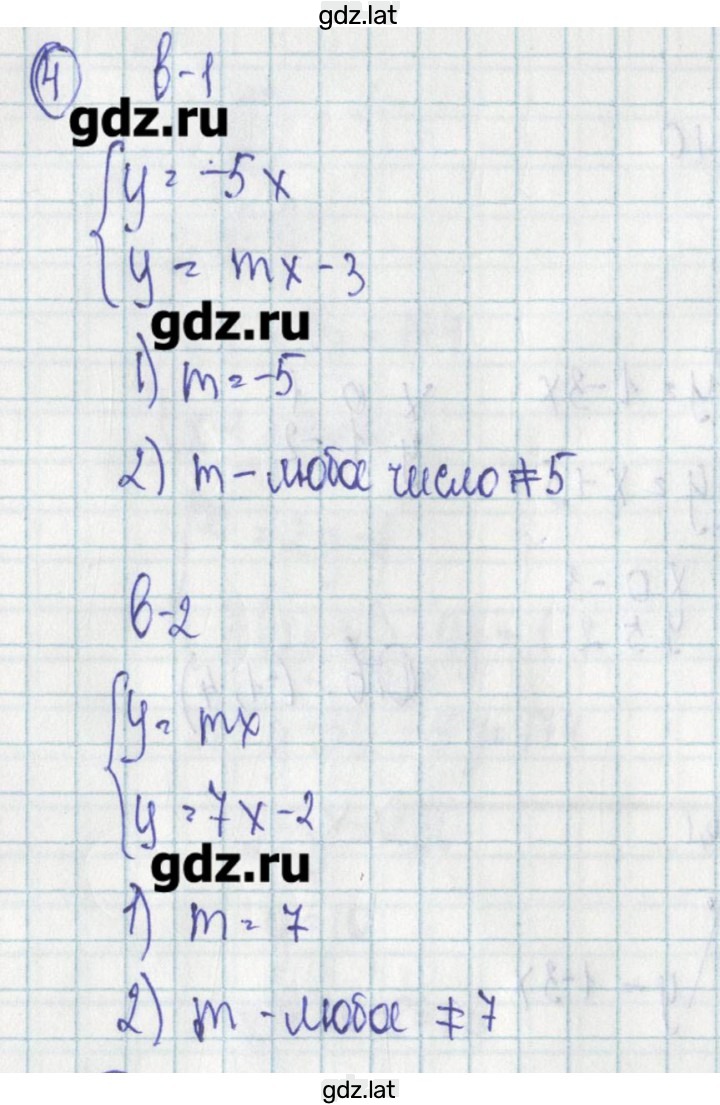 gdz.lat
4 в-1
gdz.ru
y = -5x
y = mx - 3
gdz.ru
1) m = -5
2) m - любое число ≠ 5
в-2
y = mx
y = 7x - 2
gdz.ru
1) m = 7
2) m - любое ≠ 7
gdz.lat